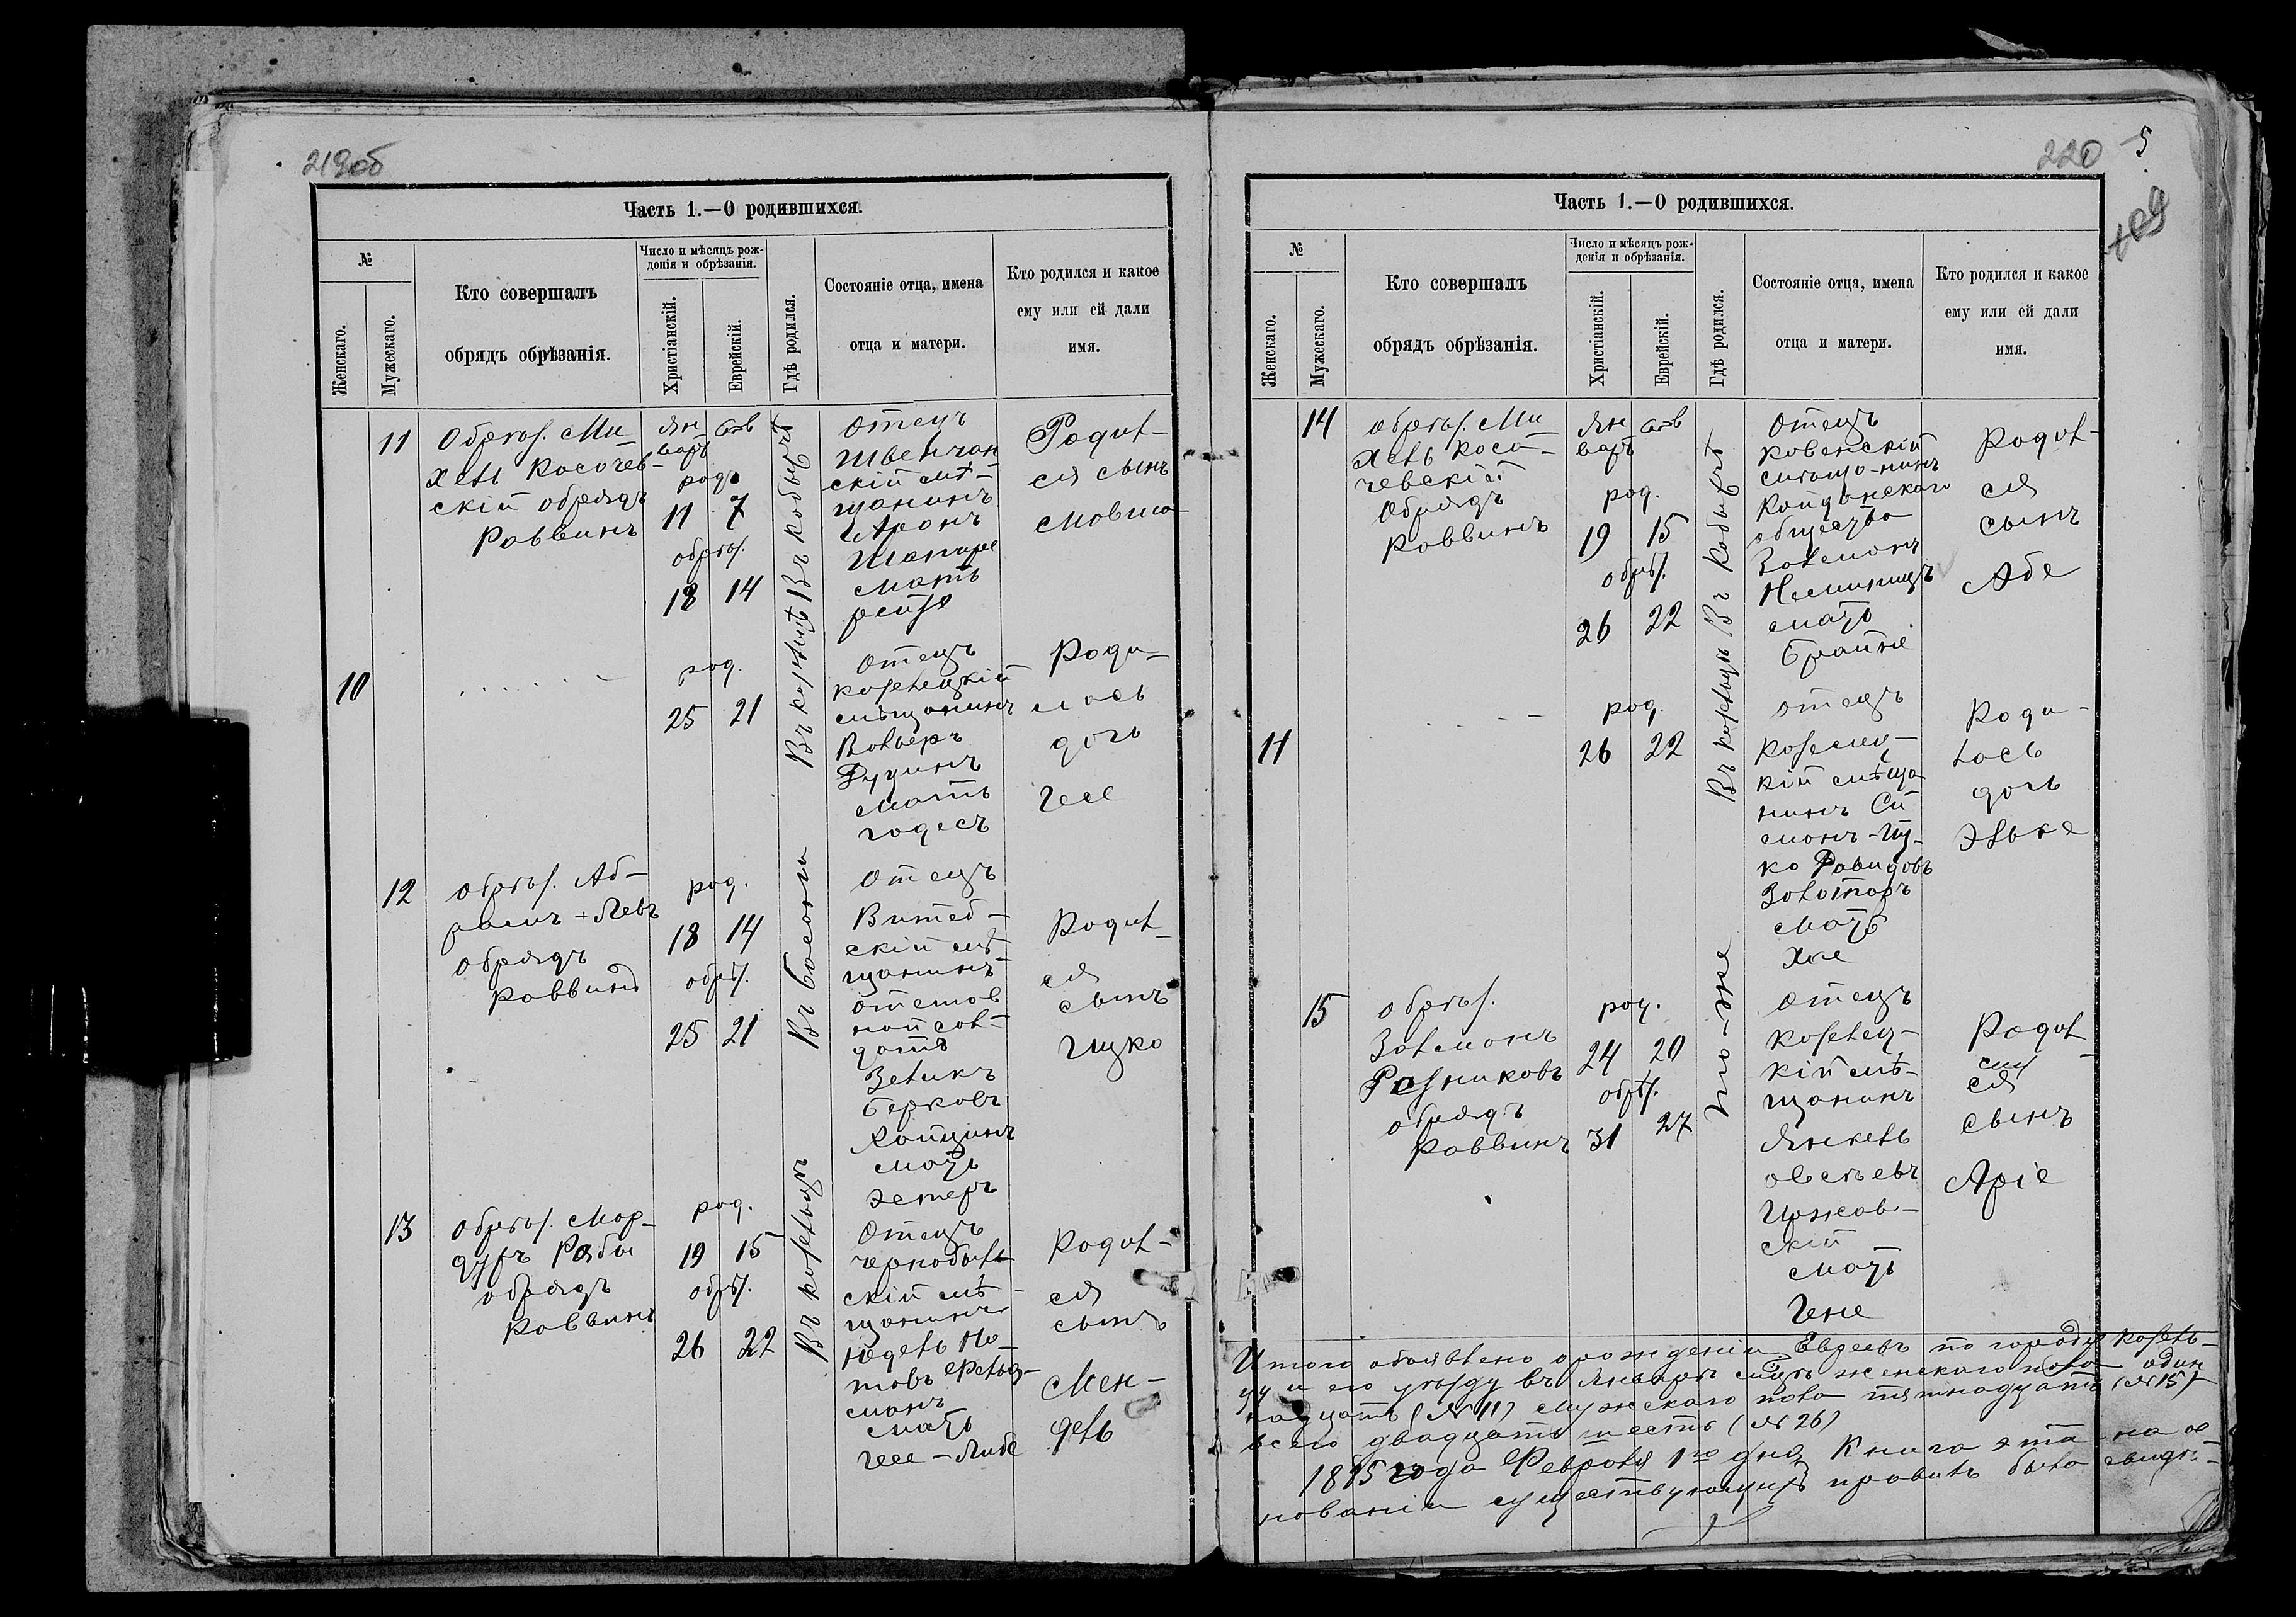 219об
Часть 1.—О родившихся.
№
Женскаго.
Мужескаго.
Кто совершалъ
обрядъ обрѣзанія.
Число и мѣсяцъ рож-
денія и обрѣзанія.
Христіанскій.
Еврейскій.
Гдѣ родился.
Состояніе отца, имена
отца и матери.
Кто родился и какое
ему или ей дали
имя.
11
Обрѣз. Ми-
хель Косочев-
скій обрядъ
Раввинъ
Ян-
варъ
род.
11 7
обрѣз.
18 14
Отецъ
Швенчан
скій мѣ-
щанинъ
Аронъ
Шапире
мать
Родил-
ся сынъ
Мовша
10
род.
25 21
Отецъ
козелецкій
мѣщанинъ
Вольфъ
мать
годесъ
Роди-
лась
дочь
Гесе
12
обрѣз. Аб-
обрядъ
Раввинъ
род.
18 14
обрѣз.
25 21
Отецъ
Витеб-
скій мѣ-
щанинъ
отстав
ной сол-
датъ
Зеликъ
Берковъ
мать
Эстеръ
Родил-
ся
сынъ
Ицко
13
обрѣз. Мор-
обрядъ
Раввинъ
род.
19 15
обрѣз.
26 22
Въ козельцѣ
Отецъ
чернобыль
скій мѣ-
щанинъ
Юдель Но-
товъ Фельд-
манъ
мать
Гесе-Либе
Родил-
ся
сынъ
Мен-
дель
220 5
Часть 1.—О родившихся.
№
Женскаго.
Мужескаго.
Кто совершалъ
обрядъ обрѣзанія.
Число и мѣсяцъ рож-
денія и обрѣзанія.
Христіанскій.
Еврейскій.
Гдѣ родился.
Состояніе отца, имена
отца и матери.
Кто родился и какое
ему или ей дали
имя.
14
обрѣз. Ми
хель Косо-
чевскій
Обрядъ
Раввинъ
Ян
варъ
род.
19 15
обрѣз.
26 22
Отецъ
ковенскій
общества
Залманъ
мать
Брайне
Родил-
ся
сынъ
Абе
11
род.
26 22
отецъ
Козелец-
кій мѣща
нинъ Си
монъ-Иц-
ко
Золотаръ
мать
Хае
Роди-
лась
дочь
Элька
15
обрѣз.
Залманъ
Резниковъ
обрядъ
Раввинъ
род.
24 20
обрѣз.
31 27
то-же
отецъ
Козелец-
кій мѣ-
щанинъ
Янкель
Овсѣевъ
скій
мать
Гене
Родил-
ся
сынъ
Аріе
Итого объявлено о рожденіи Евреевъ по городу Козель-
цу и его уѣзду въ Январѣ мцѣ женскаго пола один
надцать (№ 11) мужскаго пола пятнадцать (№ 15)
всего двадцать шесть (№ 26)
1895 года Февраля 1го дня Книга эта на ос
нованіи существующихъ правилъ была свидѣ-